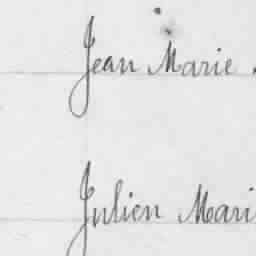 Jean Marie.
Julien Mari